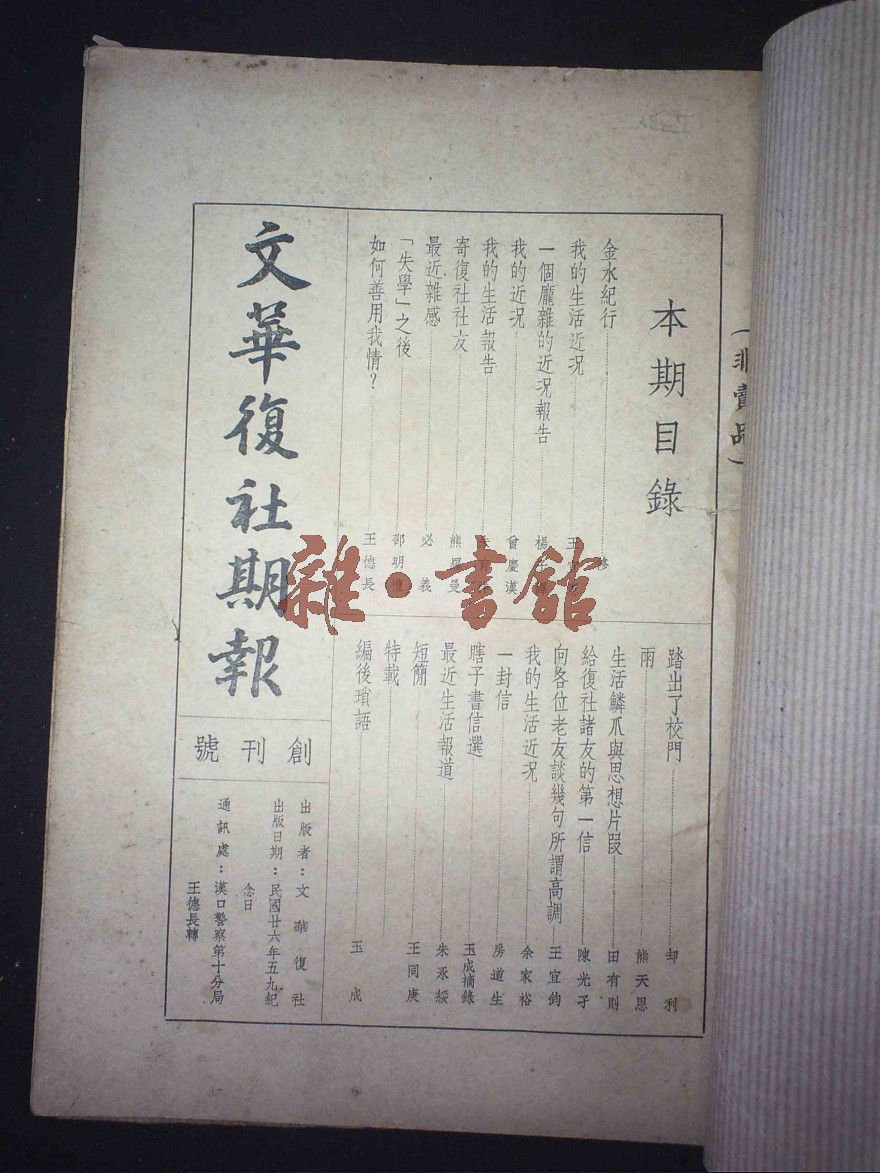 （非賣品）
本期目錄
金水紀行 修
我的生活近況 王
一個龐雜的近況報告 楊
我的近況 曾慶漢
我的生活報告
寄復社社友 熊曼
最近雜感 必義
「失學」之後 邵明禮
如何善用我情？ 王德長
踏出了校門 却利
雨 熊天恩
生活鱗爪與思想片段 田有則
給復社諸友的第一信 陳光孑
向各位老友談幾句所謂高調 王宜鈞
我的生活近況 余家裕
一封信 房道生
瞎子書信選 玉成摘錄
最近生活報道 朱承綏
短簡 王同庚
特載
編後瑣語 玉成
文華復社期報
創刊號
出版者：文華復社
出版日期：民國廿六年五九紀
念日
通訊處：漢口警察第十分局
王德長轉
雜·書館